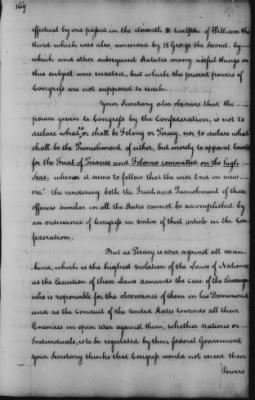 169
effected by one passed in the eleventh & twelfth of William the
third which was also, amended by 18 George the second. by
which and other subsequent Statutes many useful things on
this subject were enacted, but which the present powers of
Congress are not supposed to reach.
Your Secretary also observes that the
power given to Congress by the Confederation, is not to
declare what shall be Felony or Piracy, nor to declare what
shall be the Punishment of either, but merely to appoint Courts
for the Trial of Piracies and Felonies committed on the high
Seas, whence it seems to follow that the wise End in view
viz.t the rendering both the Trial and Punishment of these
offences similar in all the States cannot be accomplished by
an ordinance of Congress in virtue of that article in the Con
federation.
But as Piracy is War against all man
kind, which is the highest violation of the Laws of Nations,
as the Execution of those Laws demands the care of the Sovereign
who is responsible for the observance of them in his Dominions
and as the Conduct of the United States towards all their
Enemies in open War against them, whether nations or
Individuals, is to be regulated by their federal Government
your Secretary thinks that Congress would not exceed their
Powers